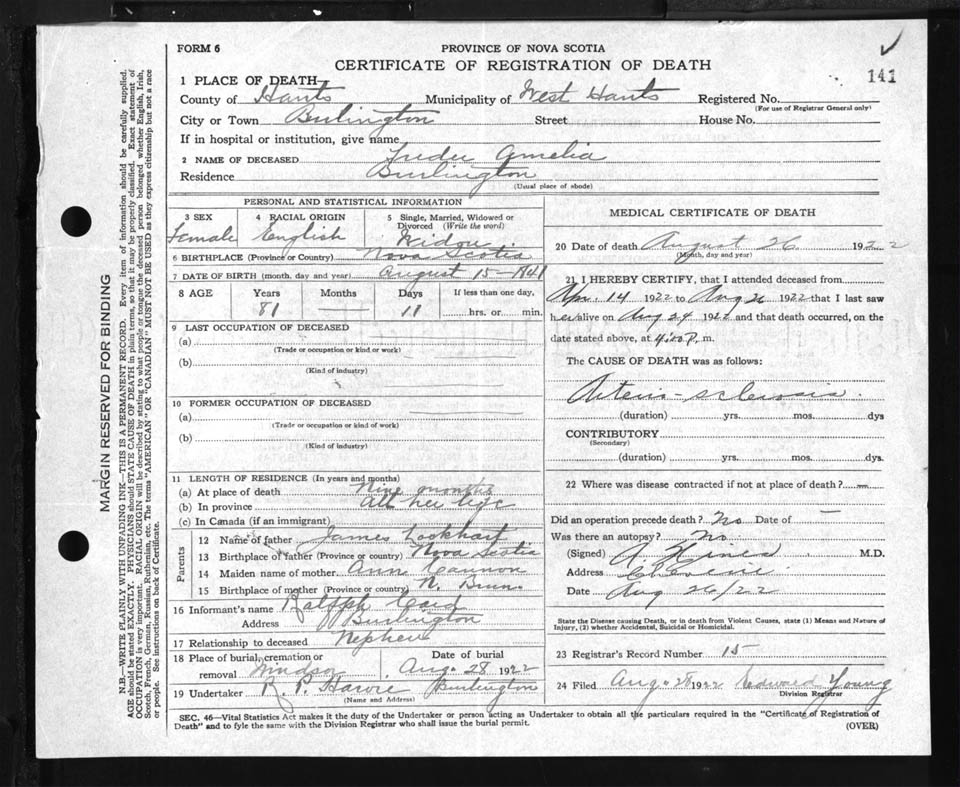 FORM 6
PROVINCE OF NOVA SCOTIA
CERTIFICATE OF REGISTRATION OF DEATH
141
1 PLACE OF DEATH
County of Hants Municipality of West Hants Registered No.
(For use of Registrar General only)
City or Town Burlington Street House No.
If in hospital or institution, give name
2 NAME OF DECEASED Amelia
Residence Burlington
(Usual place of abode)
PERSONAL AND STATISTICAL INFORMATION
3 SEX 4 RACIAL ORIGIN 5 Single, Married, Widowed or Divorced (Write the word)
Female English Widow
6 BIRTHPLACE (Province or Country) Nova Scotia
7 DATE OF BIRTH (month, day and year) August 15 - 1841
8 AGE Years Months Days If less than one day,
81 — 11 hrs. or min.
9 LAST OCCUPATION OF DECEASED
(a)
(Trade or occupation or kind or work)
(b)
(Kind of industry)
10 FORMER OCCUPATION OF DECEASED
(a)
(Trade or occupation or kind of work)
(b)
(Kind of industry)
11 LENGTH OF RESIDENCE (In years and months)
(a) At place of death Nine months
(b) In province All her life
(c) In Canada (if an immigrant)
Parents
12 Name of father James Lockhart
13 Birthplace of father (Province or country) Nova Scotia
14 Maiden name of mother Ann Cannon
15 Birthplace of mother (Province or country) N. Brun.
16 Informant's name Ralph
Address Burlington
17 Relationship to deceased Nephew
18 Place of burial, cremation or removal Windsor Date of burial Aug. 28 1922
19 Undertaker R. P. Harvie Burlington
(Name and Address)
MEDICAL CERTIFICATE OF DEATH
20 Date of death August 26 1922
(Month, day and year)
21 I HEREBY CERTIFY, that I attended deceased from
Apr. 14 1922 to Aug 26 1922 that I last saw
her alive on Aug 24 1922 and that death occurred, on the
date stated above, at 4:20 P. m.
The CAUSE OF DEATH was as follows:
Arterio-sclerosis.
(duration) yrs. mos. dys
CONTRIBUTORY
(Secondary)
(duration) yrs. mos. dys
22 Where was disease contracted if not at place of death? —
Did an operation precede death? No Date of —
Was there an autopsy? No.
(Signed) M.D.
Address Cheverie
Date Aug 26/22
State the Disease causing Death, or in death from Violent Causes, state (1) Means and Nature of
Injury, (2) whether Accidental, Suicidal or Homicidal.
23 Registrar's Record Number 15
24 Filed Aug 28 1922 Edward Young
Division Registrar
SEC. 46—Vital Statistics Act makes it the duty of the Undertaker or person acting as Undertaker to obtain all the particulars required in the "Certificate of Registration of
Death" and to fyle the same with the Division Registrar who shall issue the burial permit.
(OVER)
MARGIN RESERVED FOR BINDING
N.B.—WRITE PLAINLY WITH UNFADING INK—THIS IS A PERMANENT RECORD. Every item of information should be carefully supplied.
AGE should be stated EXACTLY. PHYSICIANS should STATE CAUSE OF DEATH in plain terms, so that it may be properly classified. Exact statement of
OCCUPATION is very important. RACIAL ORIGIN will be described by stating to what people or tongue the deceased person belonged whether English, Irish,
Scotch, French, German, Russian, Ruthenian, etc. The terms "AMERICAN" OR "CANADIAN" MUST NOT BE USED as they express citizenship but not a race
or people. See instructions on back of Certificate.